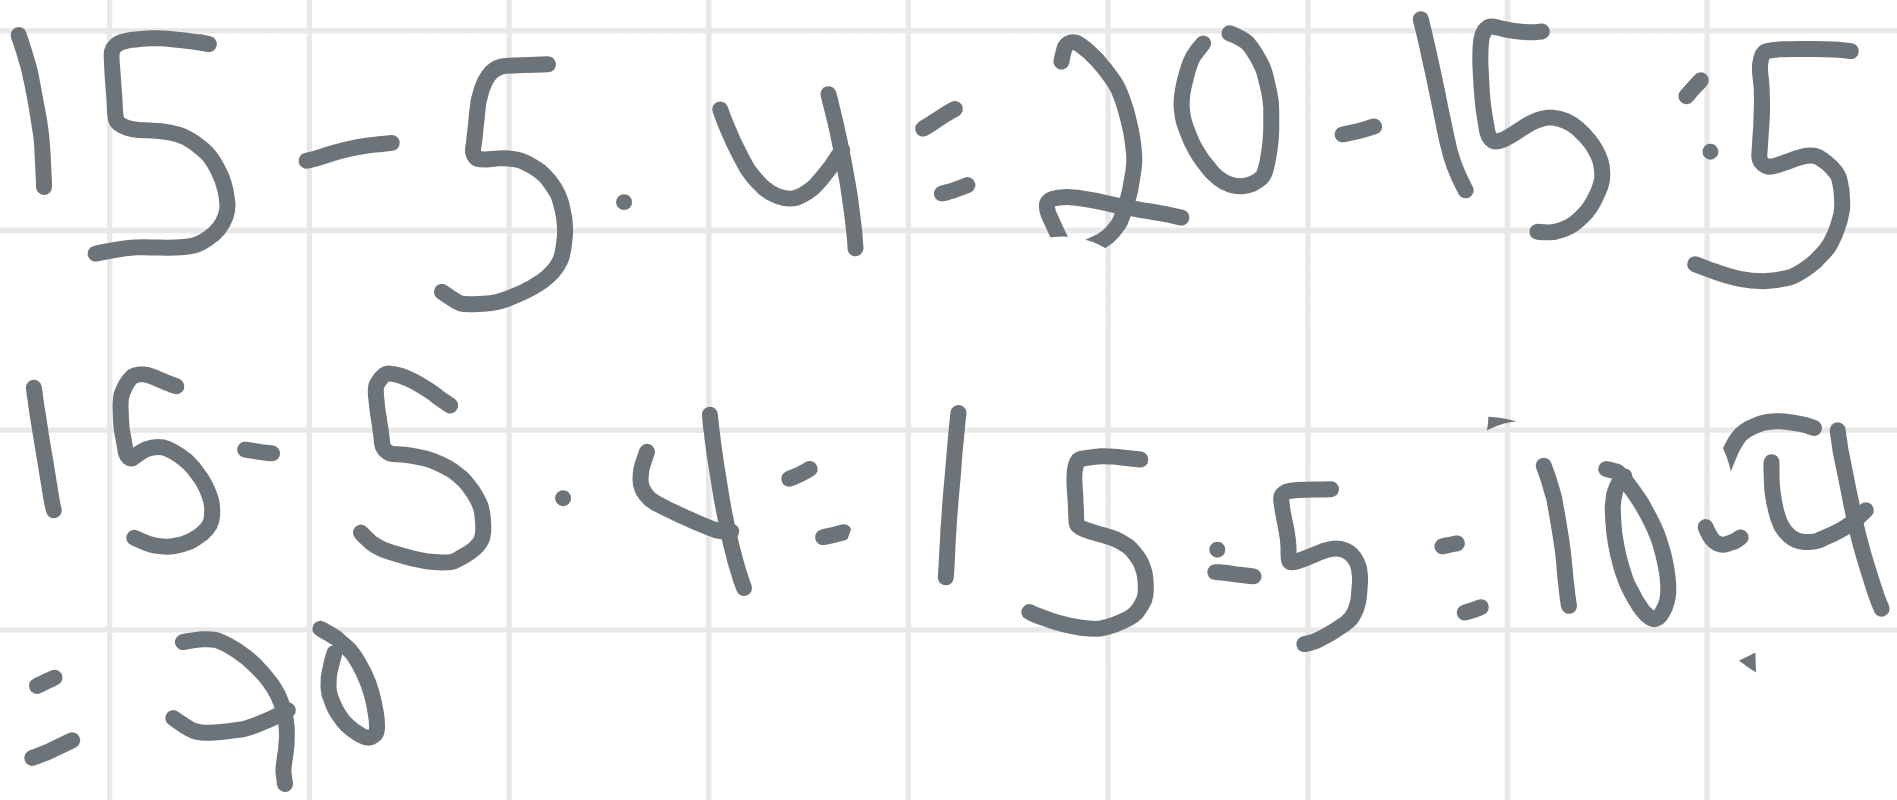 15 - 5 . 4 = 20 - 15 : 5
15 - 5 . 4 = 15 - 5 = 10 - 4
= 20